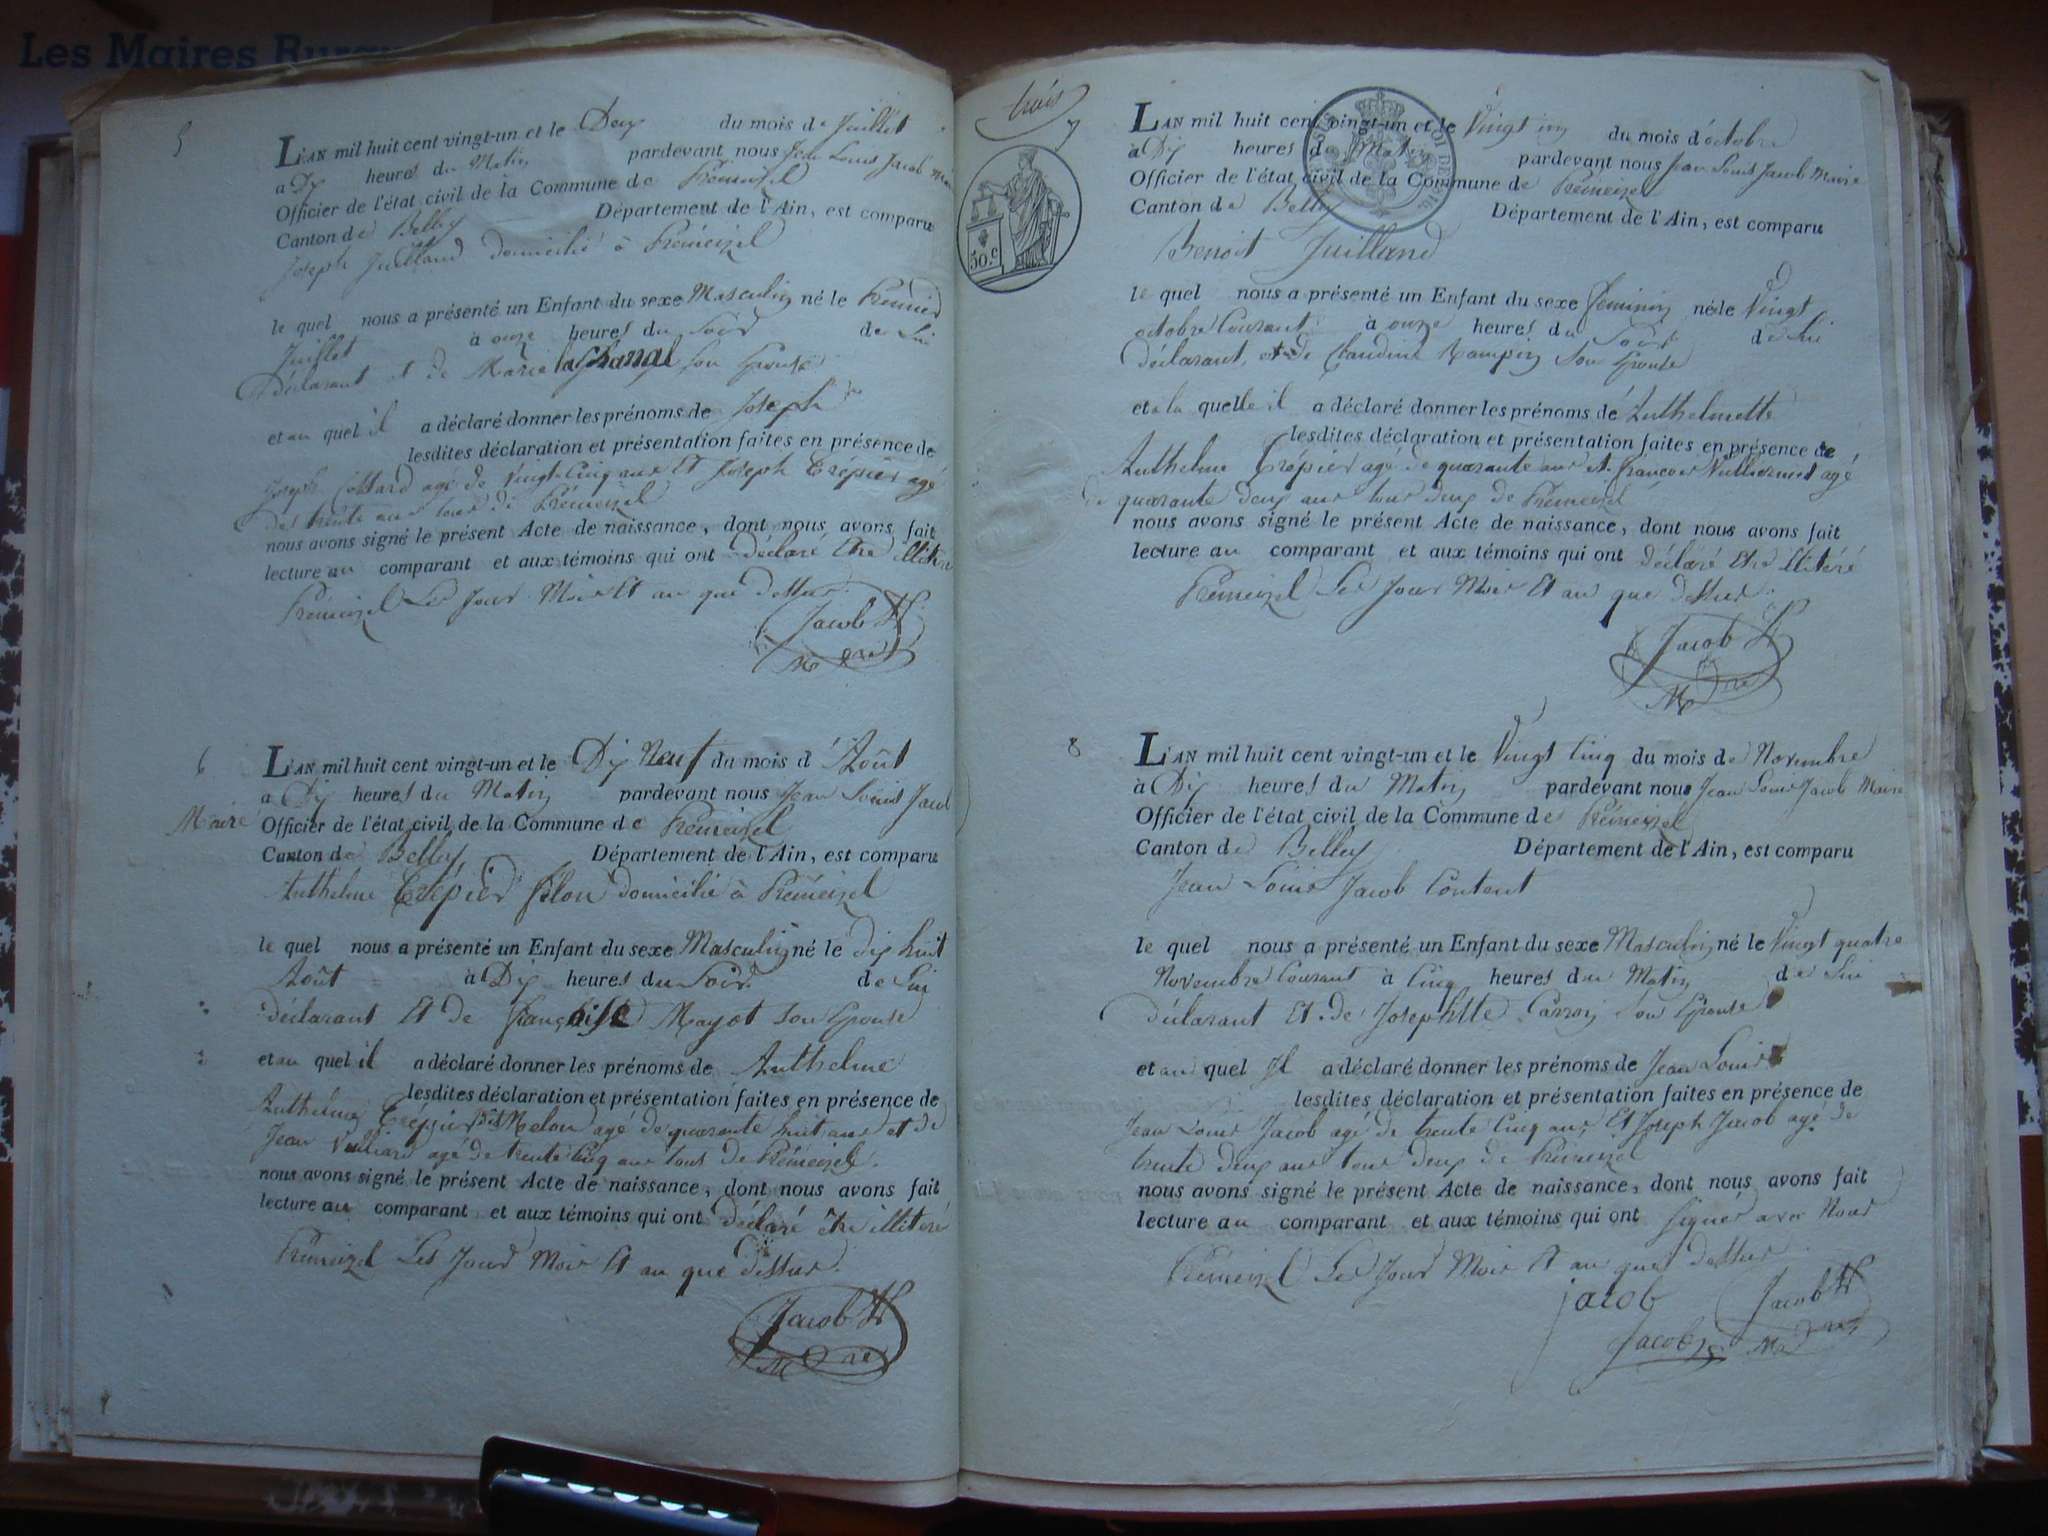 Les Maires
5
L'AN mil huit cent vingt-un et le Deux du mois de Juillet
a Dix heures du Matin pardevant nous Jean Louis Jacob
Officier de l'état civil de la Commune de Prémeizel
Canton de Belley Département de l'Ain, est comparu
Joseph Juilland domicilié à Prémeizel
le quel nous a présenté un Enfant du sexe Masculin né le Premier
Juillet à onze heures du Soir de Lui
Déclarant et de Marie Son Epouse
et au quel il a déclaré donner les prénoms de Joseph
lesdites déclaration et présentation faites en présence de
Joseph agé de vingt Cinq ans et Joseph Crépier agé
de trente ans tous de Prémeizel
nous avons signé le présent Acte de naissance, dont nous avons fait
lecture au comparant et aux témoins qui ont Déclaré Etre illitéré
Prémeizel Les Jour Mois Et an que dessus
Jacob
6
L'AN mil huit cent vingt-un et le Dix Neuf du mois d'Août
a Dix heures du Matin pardevant nous Jean Louis Jacob
Maire Officier de l'état civil de la Commune de Prémeizel
Canton de Belley Département de l'Ain, est comparu
Anthelme Crépier domicilié à Prémeizel
le quel nous a présenté un Enfant du sexe Masculin né le dix huit
Août à Dix heures du Soir de Lui
déclarant Et de Françoise Mayot son Epouse
et au quel il a déclaré donner les prénoms de Anthelme
lesdites déclaration et présentation faites en présence de
Anthelme Crépier dit Melon agé de quarante huit ans et de
Jean agé de trente Cinq ans tous de Prémeizel
nous avons signé le présent Acte de naissance, dont nous avons fait
lecture au comparant et aux témoins qui ont Déclaré être illitéré
Prémeizel Les Jour Mois Et an que dessus
Jacob
trois
50.c
7
L'AN mil huit cent vingt-un et le Vingt un du mois d'octobre
à Dix heures du Matin pardevant nous Jean Louis Jacob Maire
Officier de l'état civil de la Commune de Prémeizel
Canton de Belley Département de l'Ain, est comparu
Benoit Juilland
le quel nous a présenté un Enfant du sexe feminin né le Vingt
octobre Courant à onze heures du Soir de Lui
déclarant, et de Claudine Son Epouse
et a la quelle il a déclaré donner les prénoms de Anthelmette
lesdites déclaration et présentation faites en présence de
Anthelme Crépier agé de quarante ans et françois Vuilliermet agé
de quarante deux ans tous deux de Prémeizel
nous avons signé le présent Acte de naissance, dont nous avons fait
lecture au comparant et aux témoins qui ont déclaré Etre illitéré
Prémeizel Les Jour Mois Et an que dessus
Jacob
8
L'AN mil huit cent vingt-un et le Vingt Cinq du mois de Novembre
à Dix heures du Matin pardevant nous Jean Louis Jacob Maire
Officier de l'état civil de la Commune de Prémeizel
Canton de Belley Département de l'Ain, est comparu
Jean Louis Jacob Content
le quel nous a présenté un Enfant du sexe Masculin né le Vingt quatre
Novembre Courant à Cinq heures du Matin de Lui
déclarant Et de Josephtte Carron Son Epouse
et au quel Il a déclaré donner les prénoms de Jean Louis
lesdites déclaration et présentation faites en présence de
Jean Louis Jacob agé de trente Cinq ans, Et Joseph Jacob agé de
trente deux ans tous deux de Prémeizel
nous avons signé le présent Acte de naissance, dont nous avons fait
lecture au comparant et aux témoins qui ont signés avec Nous
Prémeizel Les Jour Mois Et an que dessus
jacob Jacob
Jacob